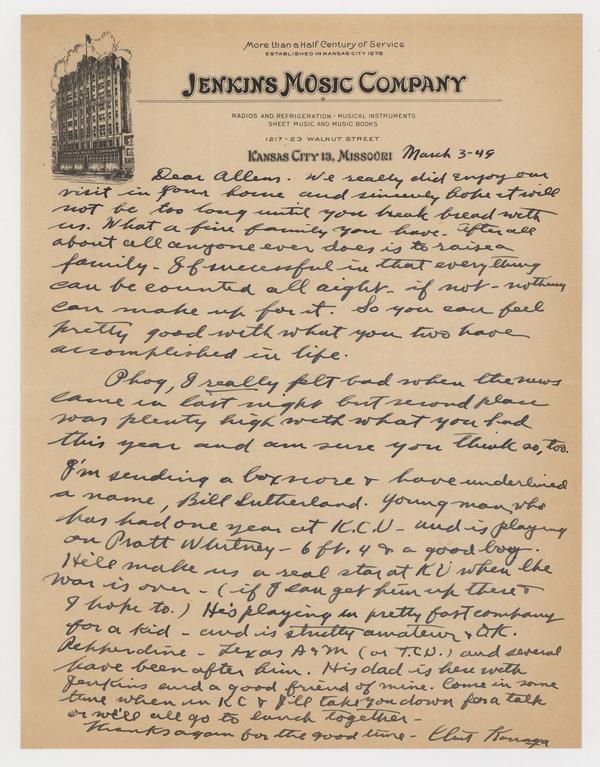 More than a Half Century of Service
ESTABLISHED IN KANSAS CITY 1878
JENKINS MUSIC COMPANY
RADIOS AND REFRIGERATION - MUSICAL INSTRUMENTS
SHEET MUSIC AND MUSIC BOOKS
1217-23 WALNUT STREET
KANSAS CITY 13, MISSOURI March 3-49
Dear Allens. We really did enjoy our
visit in your home and sincerely hope it will
not be too long until you break bread with
us. What a fine family you have. After all
about all anyone ever does is to raise a
family - If successful in that everything
can be counted all right - if not - nothing
can make up for it. So you can feel
pretty good with what you two have
accomplished in life.
Phog, I really felt bad when the news
came in last night but second place
was plenty high with what you had
this year and am sure you think so, too.
I'm sending a boxscore & have underlined
a name, Bill Sutherland. Young man, who
has had one year at K.C.U - and is playing
on Pratt Whitney - 6 ft. 4 & a good boy.
He'll make us a real star at KU when the
war is over - (if I can get him up there &
I hope to.) He's playing in pretty fast company
for a kid - and is strictly amateur & O.K.
Pepperdine - Texas A & M (or T.C.U.) and several
have been after him. His dad is here with
Jenkins and a good friend of mine. Come in some
time when in KC & I'll take you down for a talk
or we'll all go to lunch together -
Thanks again for the good time - Clint Kanaga